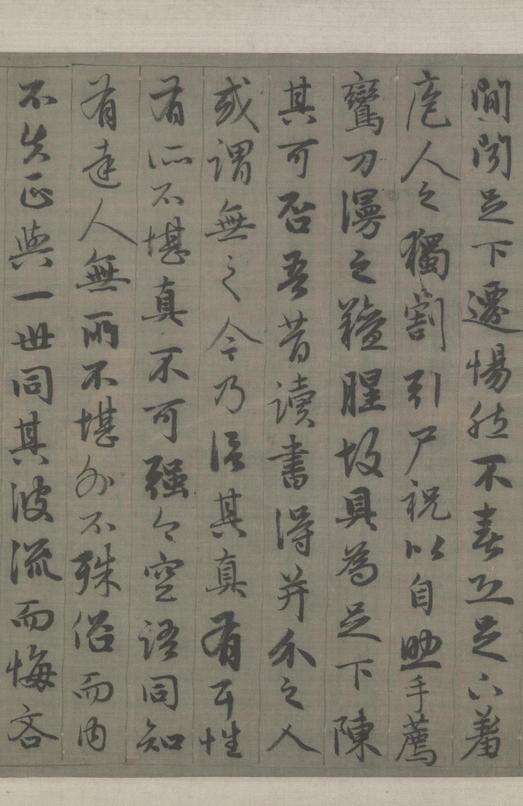 間聞足下遷惕然不喜恐足下羞
庖人之獨割引尸祝以自助手薦
鸞刀漫之羶腥故具為足下陳
其可否吾昔讀書得并介之人
或謂無之今乃信其真有耳性
有所不堪真不可强今空語同知
有達人無所不堪外不殊俗而內
不失正與一世同其波流而悔吝